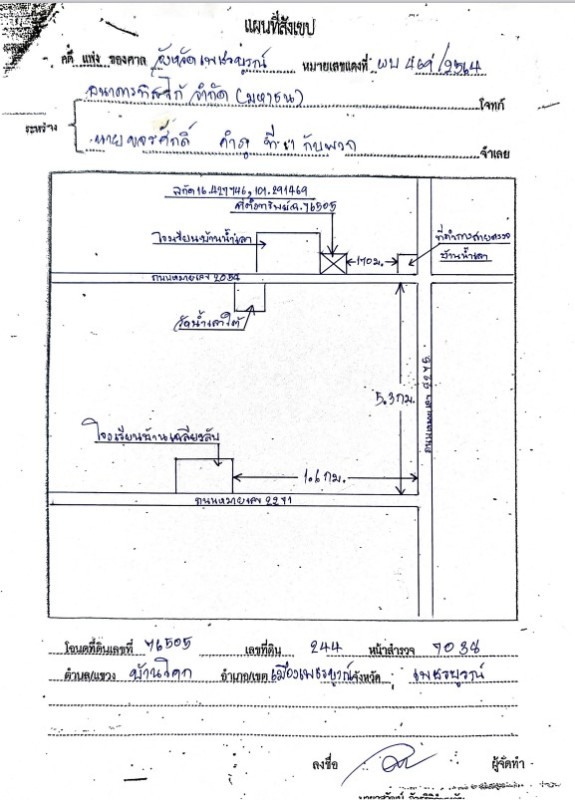 แผนที่สังเขป
คดี แพ่ง ของศาล จังหวัดเพชรบูรณ์ หมายเลขแดงที่ ผบ 469/2564
ธนาคารทิสโก้ จำกัด (มหาชน) โจทก์
ระหว่าง
นาย ที่ 1 กับพวก จำเลย
พิกัด 16.427746, 101.291469
ที่ตั้งทรัพย์ ฉ.76505
โรงเรียนบ้านน้ำเลา
170 ม.
ที่ทำการสายตรวจ
บ้านน้ำเลา
ถนนหมายเลข
วัดน้ำเลาใต้
5.3 กม.
ถนนหมายเลข
โรงเรียนบ้านเฉลียงลับ
1.6 กม.
ถนนหมายเลข 2271
โฉนดที่ดินเลขที่ 76505 เลขที่ดิน 244 หน้าสำรวจ 7038
ตำบล/แขวง บ้านโคก อำเภอ/เขต เมืองเพชรบูรณ์ จังหวัด เพชรบูรณ์
ลงชื่อ ผู้จัดทำ